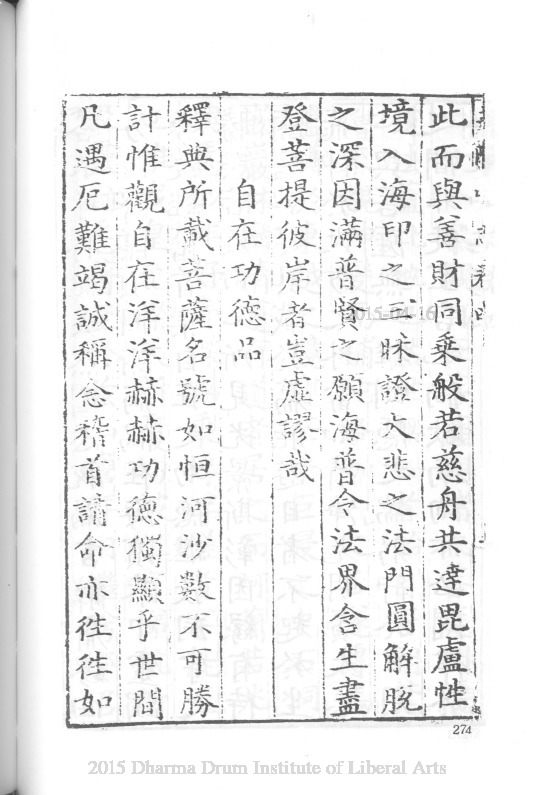 此而與善財同乘般若慈舟共達毘盧性
境入海印之三昧證大悲之法門圓解脫
之深因滿普賢之願海普令法界含生盡
登菩提彼岸者豈虛謬哉
自在功德品
釋典所載菩薩名號如恒河沙數不可勝
計惟觀自在洋洋赫赫功德獨顯乎世間
凡遇厄難竭誠稱念稽首請命亦往往如
274
2015-04-16
2015 Dharma Drum Institute of Liberal Arts